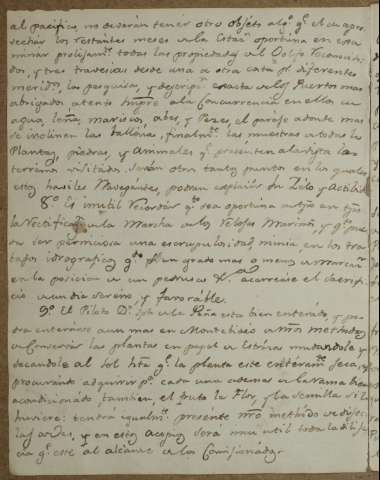 al pacifico no deverán tener otro objeto alg.º q.e el de apro
vechar los restantes meses de la Estac.n oportuna en exa
minar prolijam.te todas las propiedades del Golfo reconocido
dos, y tres travesias desde una a otra costa p.r diferentes
merid.s, la pesquisa, y descripc.n exacta de los Puertos mas
abrigados atento siempre a la concurrencia en ellos de
agua, leña, mariscos, abes, y Pezes, el paraje adonde mas
se inclinen las ballenas, finalm.te las muestras de todas las
Plantas, piedras, y Animales q.e presenten a la vista los
terrenos visitados, serán otros tantos puntos en los quales
estos habiles Navegantes, podran explaiar su Zelo y Actibid.d
8.º Es inutil recordar q.e sea oportuna
la rectificac.n de la Marcha de los reloxes Marin.s, y q.e pue
da ser perniciosa una escrupulosidad nimia en los tra
bajos idrograficos q.do un grado mas o menos de marcac.n
en la posicion de un pedrusco &.a acarrease el sacrifi
cio de un dia sereno, y favorable.
9.º El Piloto D.n Jph de la Peña esta bien enterado, y po
dra enterarse aun mas en Montebideo de nro methodo
de conservar las plantas en papel de estraza mudandole y
sacandole al sol hta q.e la planta esté enteram.te seca,
procurando adquirir p.a cada una ademas de la rama bien
acondicionada tambien el fruto la Flor, y la semilla si la
huviere: tendrá igualm.te presente nro methodo de disecar
las aves, y en estos acopios será mui util toda la dilixen
cia q.e esté al alcance de los Comisionados.